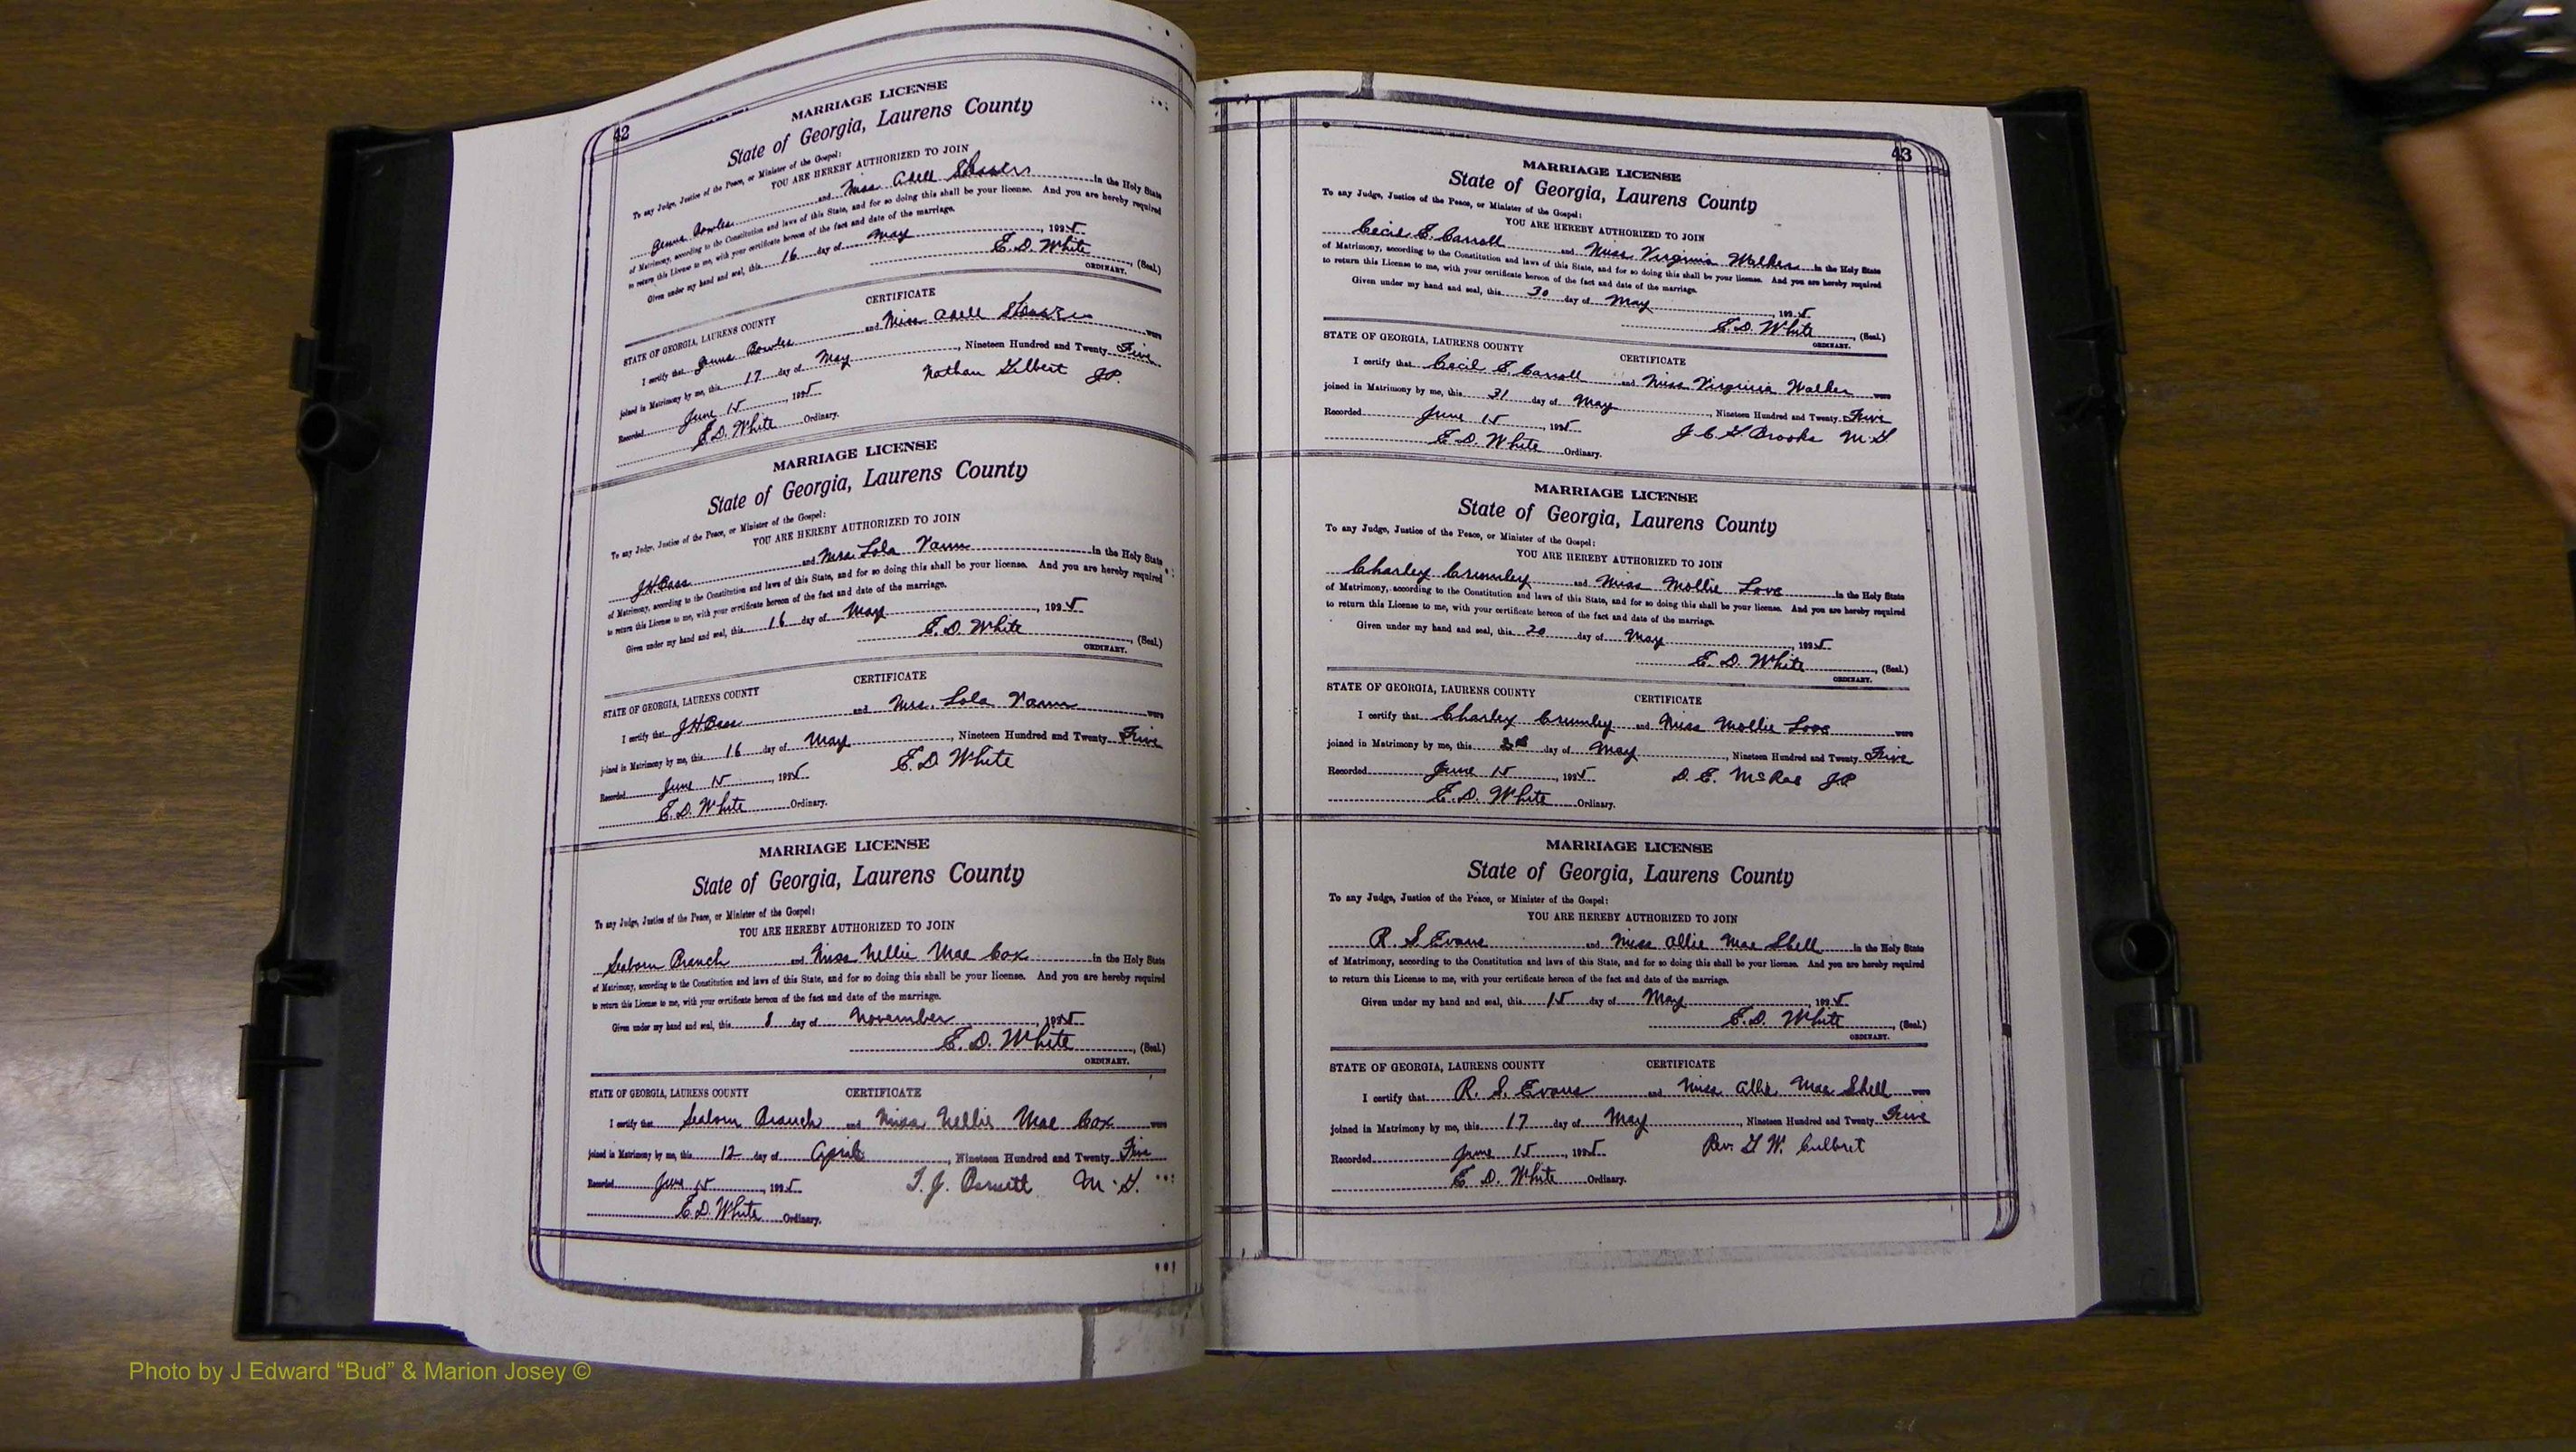 42
MARRIAGE LICENSE
State of Georgia, Laurens County
To any Judge, Justice of the Peace, or Minister of the Gospel:
YOU ARE HEREBY AUTHORIZED TO JOIN
Bowles and Miss Adell in the Holy State
of Matrimony, according to the Constitution and laws of this State, and for so doing this shall be your license. And you are hereby required
to return this License to me, with your certificate hereon of the fact and date of the marriage.
Given under my hand and seal, this 16 day of May, 1925
E.D. White, (Seal.)
ORDINARY.
CERTIFICATE
STATE OF GEORGIA, LAURENS COUNTY
I certify that Bowles and Miss Adell were
joined in Matrimony by me, this 17 day of May, Nineteen Hundred and Twenty Five
Recorded June 15, 1925 Nathan Gilbert J.P.
E.D. White Ordinary.
MARRIAGE LICENSE
State of Georgia, Laurens County
To any Judge, Justice of the Peace, or Minister of the Gospel:
YOU ARE HEREBY AUTHORIZED TO JOIN
J.H. Bass and Mrs. Lola Vann in the Holy State
of Matrimony, according to the Constitution and laws of this State, and for so doing this shall be your license. And you are hereby required
to return this License to me, with your certificate hereon of the fact and date of the marriage.
Given under my hand and seal, this 16 day of May, 1925
E.D. White, (Seal.)
ORDINARY.
CERTIFICATE
STATE OF GEORGIA, LAURENS COUNTY
I certify that J.H. Bass and Mrs. Lola Vann were
joined in Matrimony by me, this 16 day of May, Nineteen Hundred and Twenty Five
Recorded June 15, 1925 E.D White
E.D. White Ordinary.
MARRIAGE LICENSE
State of Georgia, Laurens County
To any Judge, Justice of the Peace, or Minister of the Gospel:
YOU ARE HEREBY AUTHORIZED TO JOIN
Seaborn Branch and Miss Nellie Mae Cox in the Holy State
of Matrimony, according to the Constitution and laws of this State, and for so doing this shall be your license. And you are hereby required
to return this License to me, with your certificate hereon of the fact and date of the marriage.
Given under my hand and seal, this 8 day of November, 1925
E.D. White, (Seal.)
ORDINARY.
STATE OF GEORGIA, LAURENS COUNTY CERTIFICATE
I certify that Seaborn Branch and Miss Nellie Mae Cox were
joined in Matrimony by me, this 12 day of April, Nineteen Hundred and Twenty Five
Recorded June 15, 1925 T.J. Barnett M.G.
E.D. White Ordinary.
43
MARRIAGE LICENSE
State of Georgia, Laurens County
To any Judge, Justice of the Peace, or Minister of the Gospel:
YOU ARE HEREBY AUTHORIZED TO JOIN
Cecil E. Carroll and Miss Virginia Walker in the Holy State
of Matrimony, according to the Constitution and laws of this State, and for so doing this shall be your license. And you are hereby required
to return this License to me, with your certificate hereon of the fact and date of the marriage.
Given under my hand and seal, this 30 day of May, 1925
E.D. White, (Seal.)
ORDINARY.
STATE OF GEORGIA, LAURENS COUNTY CERTIFICATE
I certify that Cecil E. Carroll and Miss Virginia Walker were
joined in Matrimony by me, this 31 day of May, Nineteen Hundred and Twenty Five
Recorded June 15, 1925 J.C.G. Brooks M.G
E.D. White Ordinary.
MARRIAGE LICENSE
State of Georgia, Laurens County
To any Judge, Justice of the Peace, or Minister of the Gospel:
YOU ARE HEREBY AUTHORIZED TO JOIN
Charley Crumley and Miss Mollie Love in the Holy State
of Matrimony, according to the Constitution and laws of this State, and for so doing this shall be your license. And you are hereby required
to return this License to me, with your certificate hereon of the fact and date of the marriage.
Given under my hand and seal, this 20 day of May, 1925
E.D. White, (Seal.)
ORDINARY.
STATE OF GEORGIA, LAURENS COUNTY CERTIFICATE
I certify that Charley Crumley and Miss Mollie Love were
joined in Matrimony by me, this day of May, Nineteen Hundred and Twenty Five
Recorded June 15, 1925 D.E. McRae J.P.
E.D. White Ordinary.
MARRIAGE LICENSE
State of Georgia, Laurens County
To any Judge, Justice of the Peace, or Minister of the Gospel:
YOU ARE HEREBY AUTHORIZED TO JOIN
R. S Evans and Miss Allie Mae Shell in the Holy State
of Matrimony, according to the Constitution and laws of this State, and for so doing this shall be your license. And you are hereby required
to return this License to me, with your certificate hereon of the fact and date of the marriage.
Given under my hand and seal, this 15 day of May, 1925
E.D. White, (Seal.)
ORDINARY.
STATE OF GEORGIA, LAURENS COUNTY CERTIFICATE
I certify that R. S. Evans and Miss Allie Mae Shell were
joined in Matrimony by me, this 17 day of May, Nineteen Hundred and Twenty Five
Recorded June 15, 1925 Rev. G W. Culbret
E D. White Ordinary.
Photo by J Edward “Bud” & Marion Josey ©